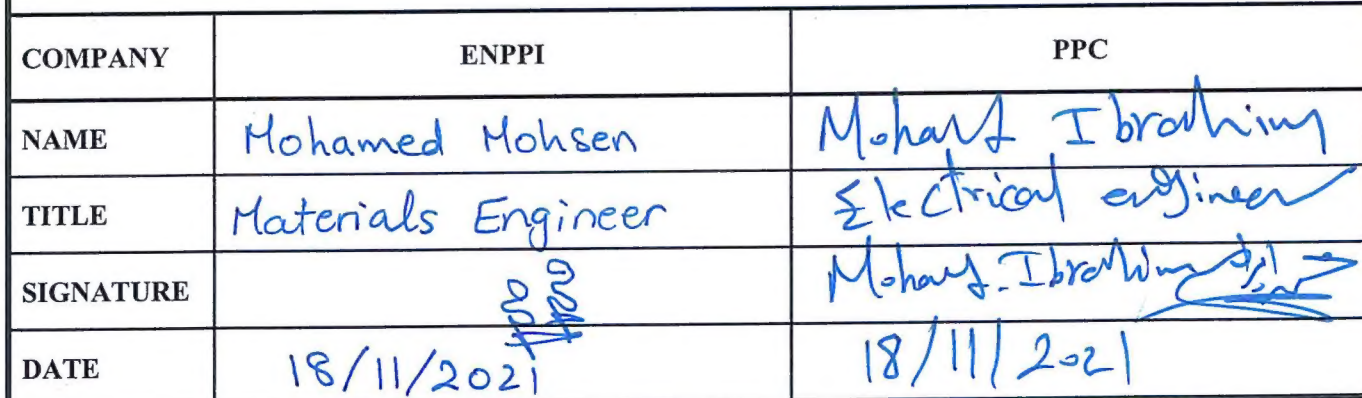 COMPANY ENPPI PPC
NAME Mohamed Mohsen Ibrahim
TITLE Materials Engineer Electrical engineer
SIGNATURE Ibrahim
DATE 18/11/2021 18/11/2021